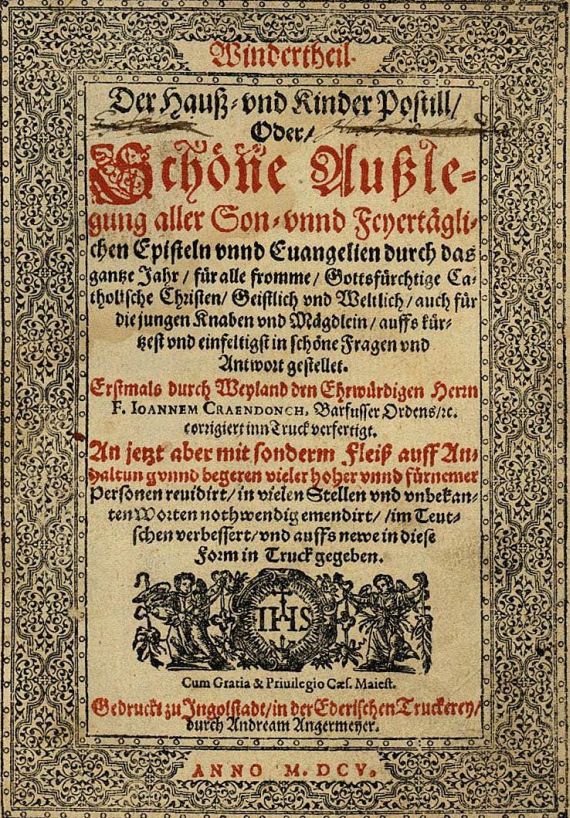 Windertheil.
Der Hauß- vnd Kinder Postill/
Oder/
Schöne Außle-
gung aller Son- vnnd Feyertägli-
chen Episteln vnnd Euangelien durch das
gantze Jahr / für alle fromme / Gottsfürchtige Ca-
tholische Christen / Geistlich vnd Weltlich / auch für
die jungen Knaben vnd Mägdlein / auffs kür-
tzest vnd einfeltigst in schöne Fragen vnd
Antwort gestellet.
Erstmals durch Weyland den Ehrwürdigen Herrn
F. IOANNEM CRAENDONCH, Barfusser Ordens / ꝛc.
corrigiert inn Truck verfertigt.
An jetzt aber mit sonderm Fleiß auff An-
haltun gvnnd begeren vieler hoher vnnd fürnemer
Personen reuidirt / in vielen Stellen vnd vnbekan-
ten Worten nothwendig emendirt / / im Teut-
schen verbessert / vnd auffs newe in diese
Form in Truck gegeben.
IHS
Cum Gratia & Priuilegio Cæs. Maiest.
Gedruckt zu Ingolstadt / in der Ederischen Truckerey /
durch Andream Angermeyer.
ANNO M. DCV.